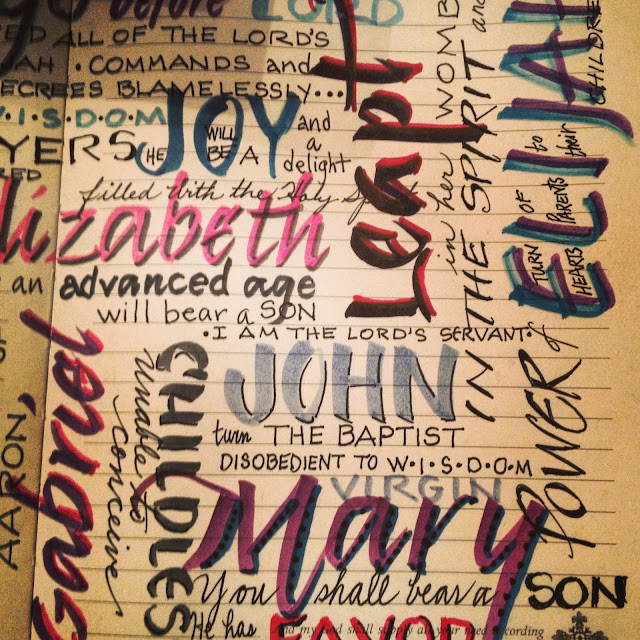 go before LORD
ALL OF THE LORD'S
COMMANDS and
DECREES BLAMELESSLY...
W•I•S•D•O•M
HE WILL BE A JOY and a delight
filled with the Holy
Elizabeth
an advanced age
will bear a SON
• I AM THE LORD'S SERVANT •
JOHN
turn THE BAPTIST
DISOBEDIENT TO W•I•S•D•O•M
VIRGIN
Mary
You shall bear a SON
He has FAVOR
and my God shall supply all your need according
Leapt
in her WOMB
and
IN THE SPIRIT
POWER of
ELIJAH
TURN HEARTS OF PARENTS to their
CHILDREN
Gabriel
CHILDLES
Unable to
conceive
AARON,